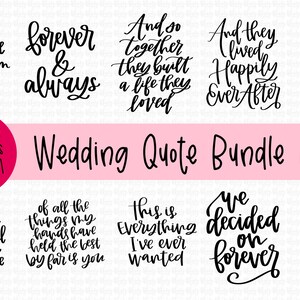 forever
&
always
And so
together
they built
a life they
loved
And they
lived
Happily
Ever After
Wedding Quote Bundle
of all the
things my
hands have
held the best
by far is you
This is
Everything
I've ever
wanted
we
decided
on
forever